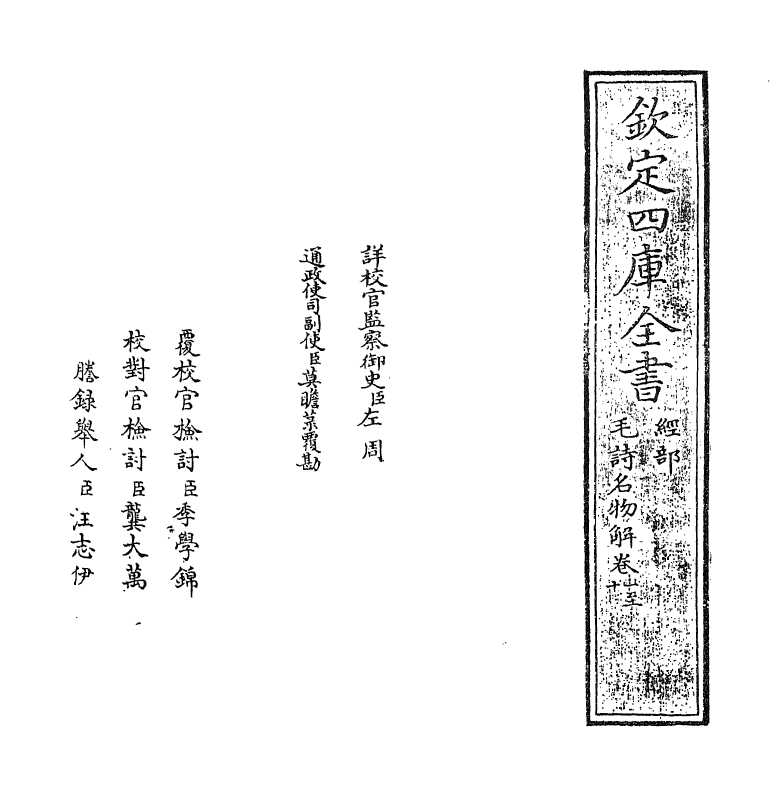 欽定四庫全書
經部
毛詩名物解卷至十
詳校官監察御史臣左周
通政使司副使臣莫瞻菉覆勘
覆校官檢討臣季學錦
校對官檢討臣龔大萬
謄録舉人臣汪志伊